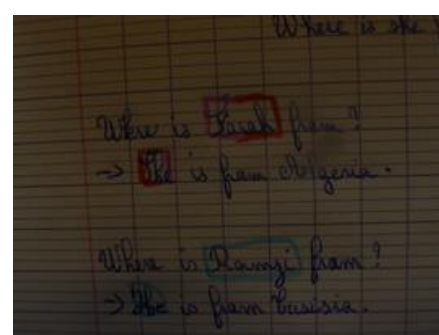 Where is she
Where is Sarah from ?
→ She is from Algeria.
Where is Ramzi from ?
→ He is from Tunisia.